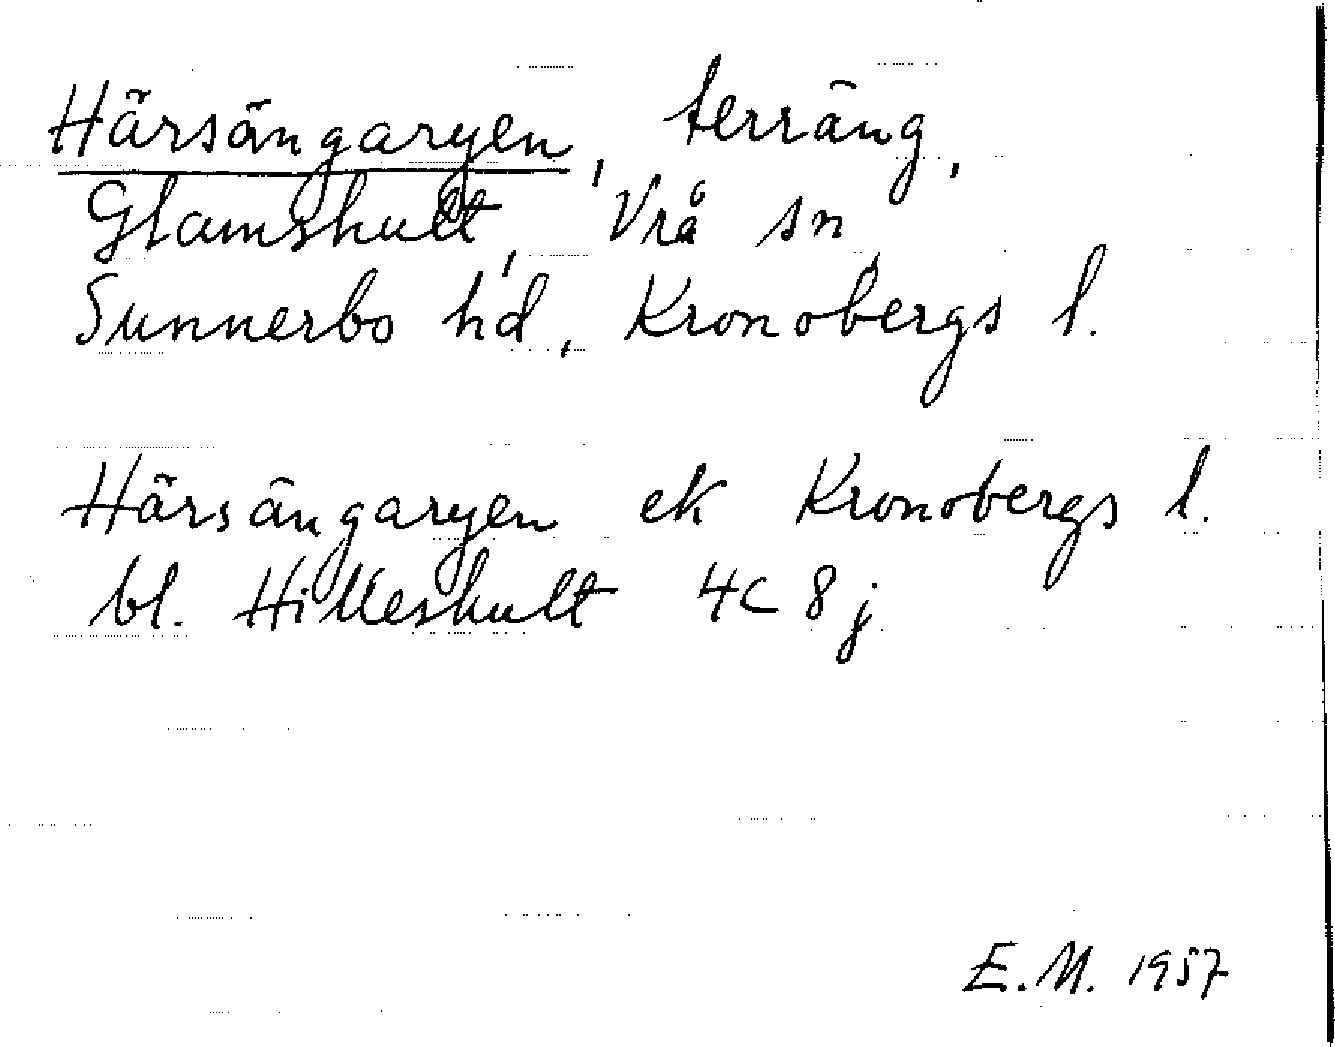 Härsängaryen, terräng,
Glamshult, Vrå sn,
Sunnerbo hd, Kronobergs l.
Härsängaryen ek Kronobergs l.
bl. Hilleshult 4C 8j
E.M. 1957